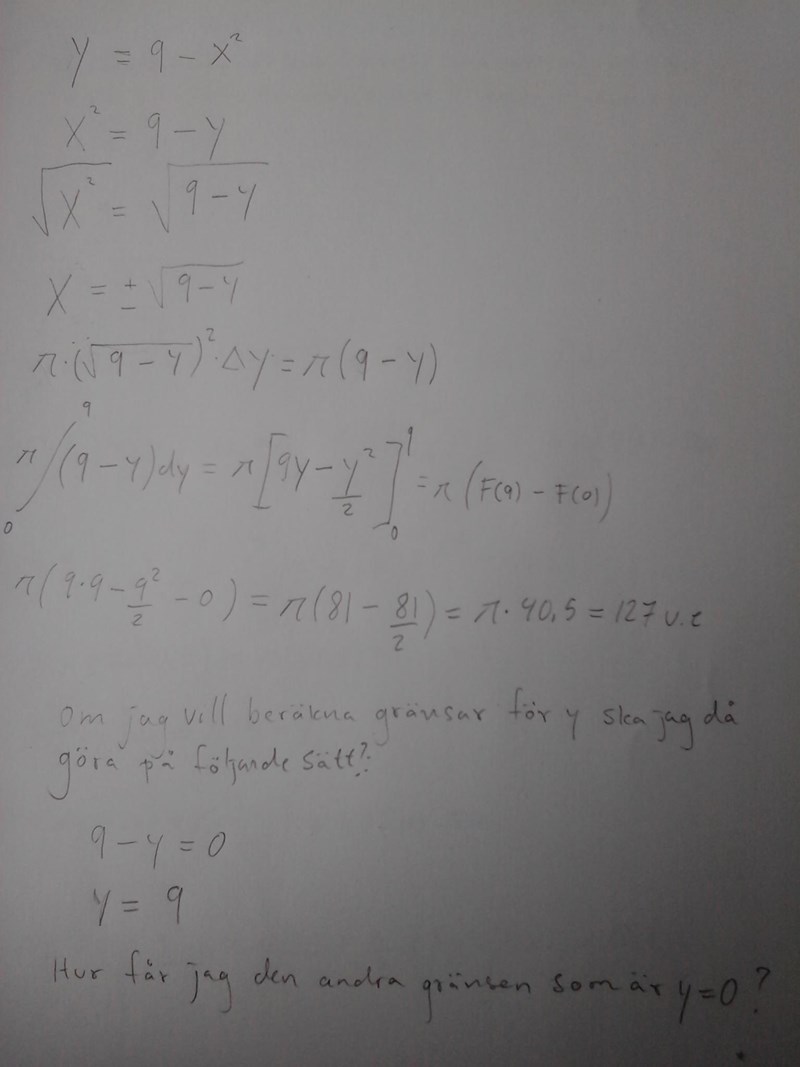 y = 9 - x²
x² = 9 - y
√x² = √9 - y
x = ± √9 - y
π·(√9 - y)²·Δy = π(9 - y)
π∫₀⁹(9 - y)dy = π[9y - y²/2]₀⁹ = π(F(9) - F(0))
π(9·9 - 9²/2 - 0) = π(81 - 81/2) = π·40,5 = 127 v.e
Om jag vill beräkna gränsar för y ska jag då
göra på följande sätt?:
9 - y = 0
y = 9
Hur får jag den andra gränsen som är y=0?